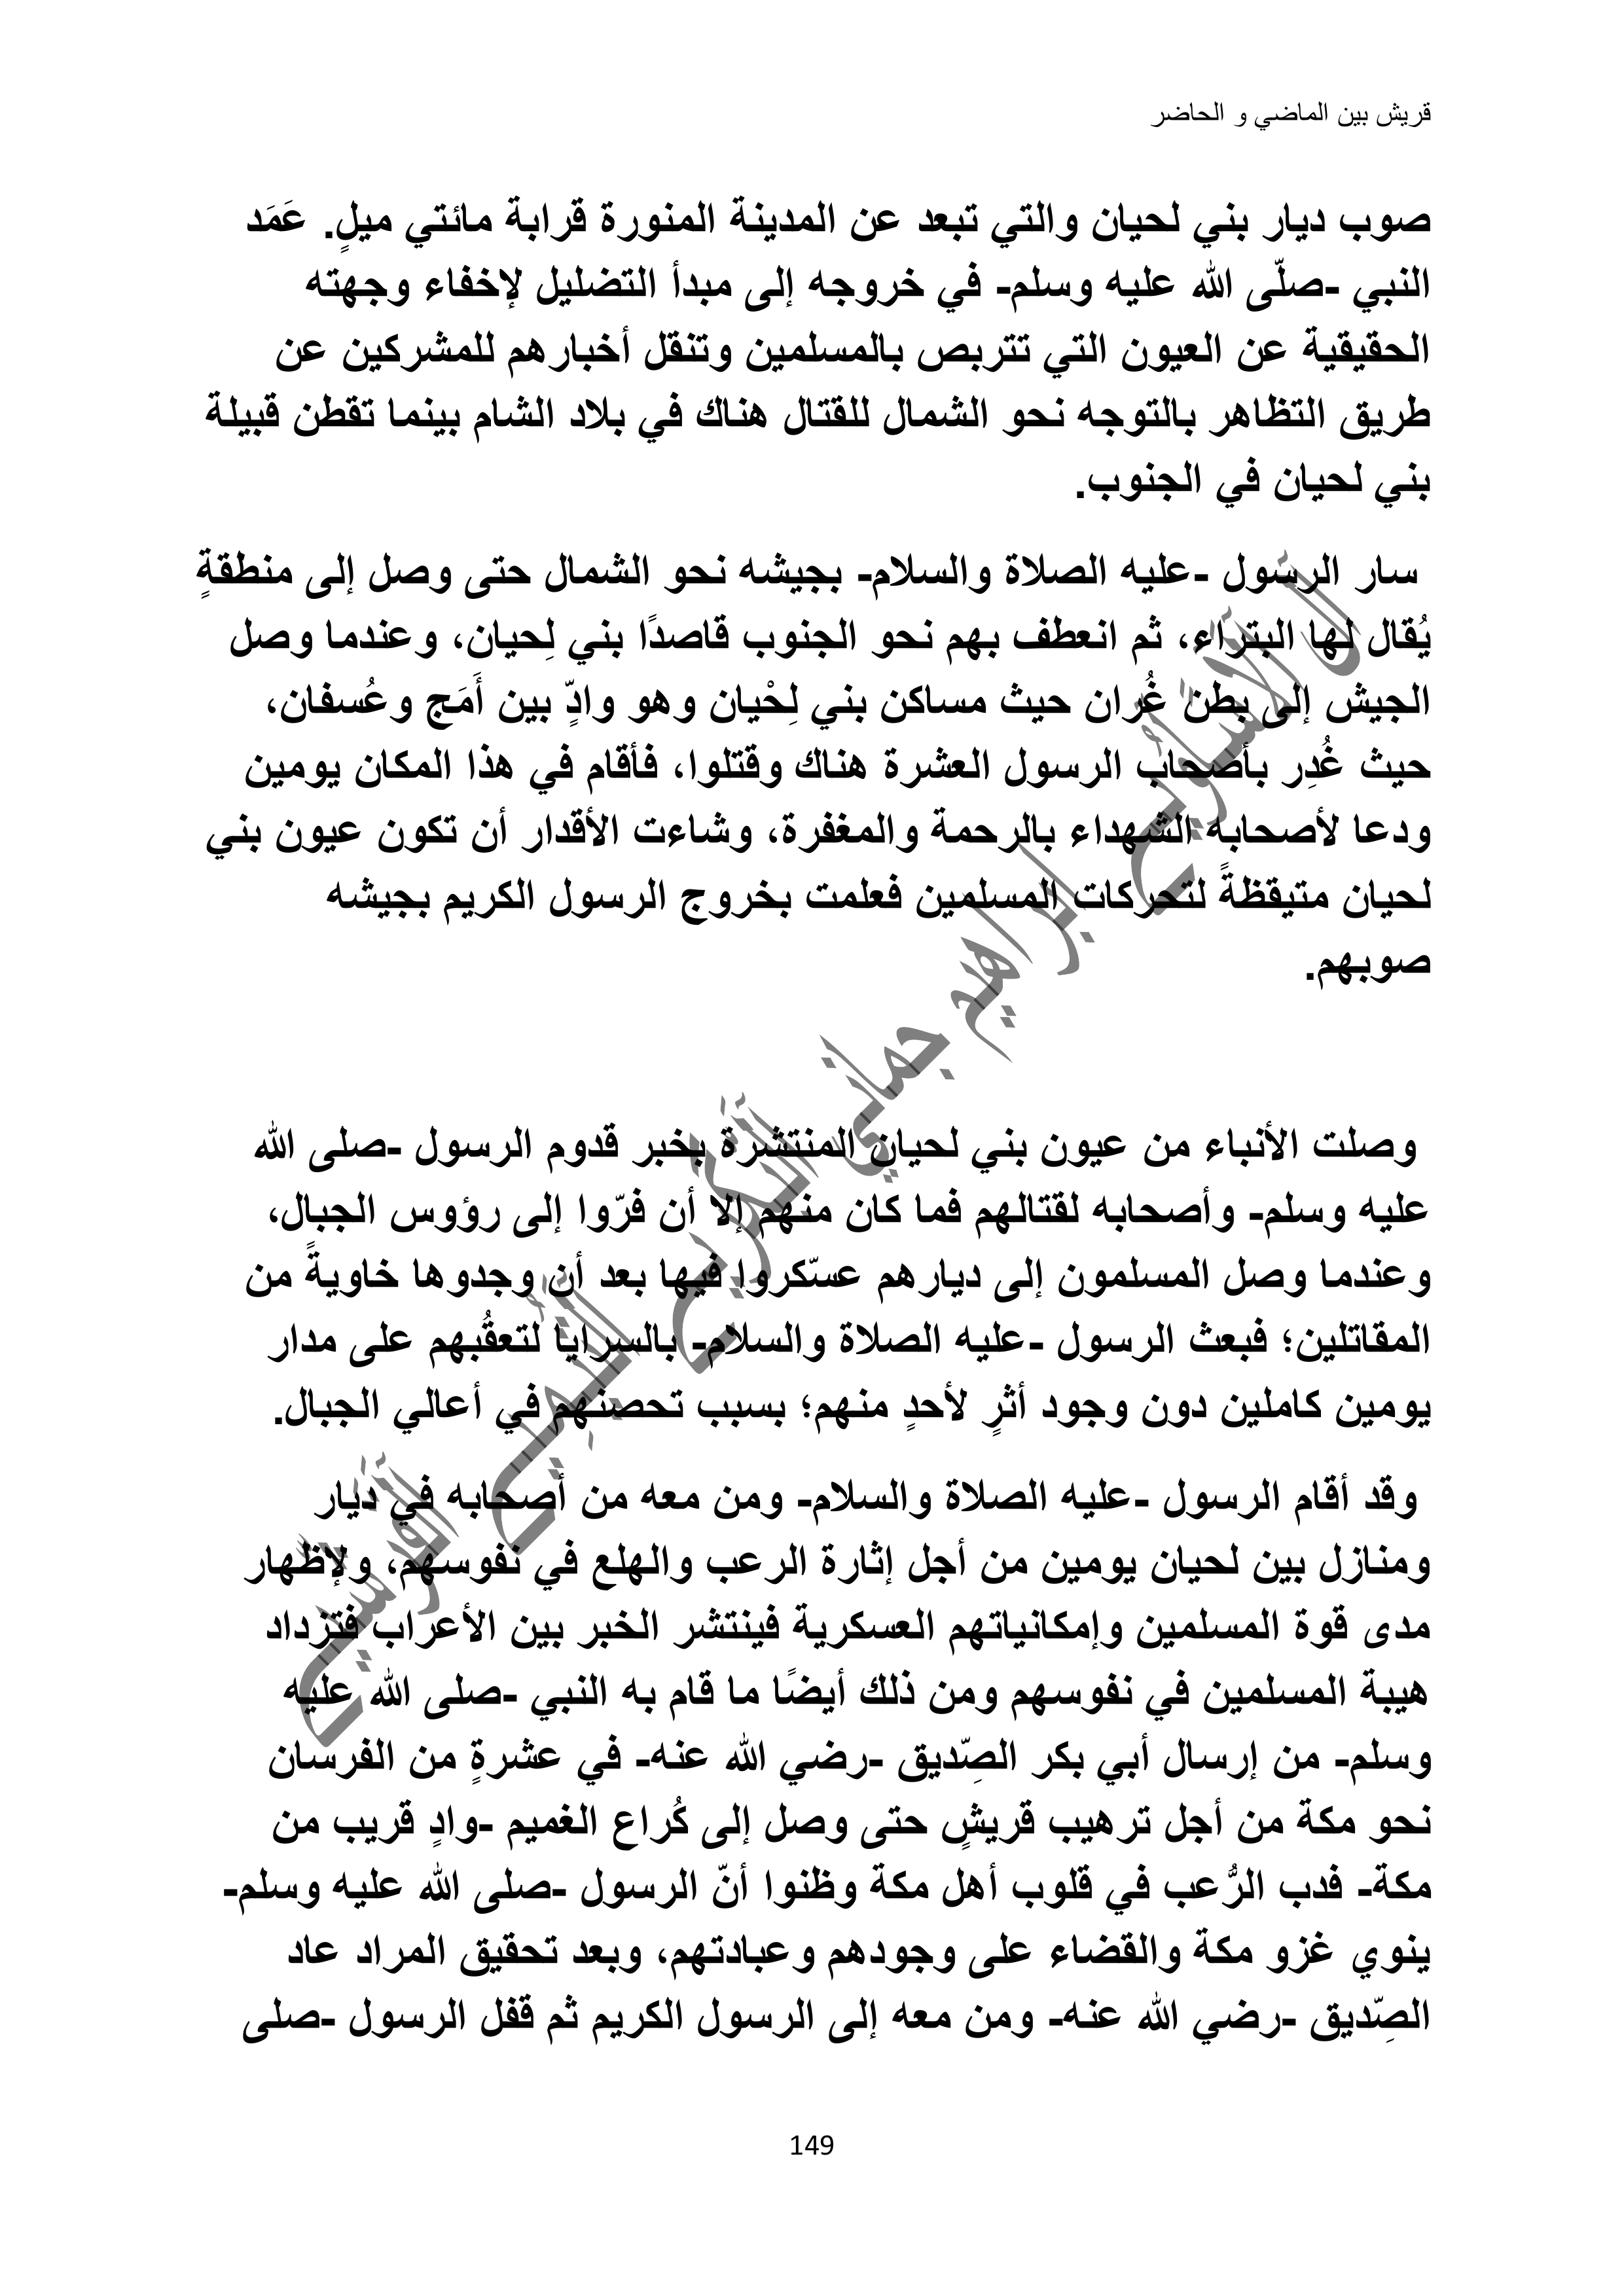 قريش بين الماضي و الحاضر
صوب ديار بني لحيان والتي تبعد عن المدينة المنورة قرابة مائتي ميلٍ. عَمَد
النبي -صلّى الله عليه وسلم- في خروجه إلى مبدأ التضليل لإخفاء وجهته
الحقيقية عن العيون التي تتربص بالمسلمين وتنقل أخبارهم للمشركين عن
طريق التظاهر بالتوجه نحو الشمال للقتال هناك في بلاد الشام بينما تقطن قبيلة
بني لحيان في الجنوب.
سار الرسول -عليه الصلاة والسلام- بجيشه نحو الشمال حتى وصل إلى منطقةٍ
يُقال لها البتراء، ثم انعطف بهم نحو الجنوب قاصدًا بني لِحيان، وعندما وصل
الجيش إلى بطن غُران حيث مساكن بني لِحْيان وهو وادٍّ بين أَمَج وعُسفان،
حيث غُدِر بأصحاب الرسول العشرة هناك وقتلوا، فأقام في هذا المكان يومين
ودعا لأصحابه الشهداء بالرحمة والمغفرة، وشاءت الأقدار أن تكون عيون بني
لحيان متيقظةً لتحركات المسلمين فعلمت بخروج الرسول الكريم بجيشه
صوبهم.
وصلت الأنباء من عيون بني لحيان المنتشرة بخبر قدوم الرسول -صلى الله
عليه وسلم- وأصحابه لقتالهم فما كان منهم إلا أن فرّوا إلى رؤوس الجبال،
وعندما وصل المسلمون إلى ديارهم عسّكروا فيها بعد أن وجدوها خاويةً من
المقاتلين؛ فبعث الرسول -عليه الصلاة والسلام- بالسرايا لتعقُبهم على مدار
يومين كاملين دون وجود أثرٍ لأحدٍ منهم؛ بسبب تحصنهم في أعالي الجبال.
وقد أقام الرسول -عليه الصلاة والسلام- ومن معه من أصحابه في ديار
ومنازل بين لحيان يومين من أجل إثارة الرعب والهلع في نفوسهم، ولإظهار
مدى قوة المسلمين وإمكانياتهم العسكرية فينتشر الخبر بين الأعراب فتزداد
هيبة المسلمين في نفوسهم ومن ذلك أيضًا ما قام به النبي -صلى الله عليه
وسلم- من إرسال أبي بكر الصِّديق -رضي الله عنه- في عشرةٍ من الفرسان
نحو مكة من أجل ترهيب قريشٍ حتى وصل إلى كُراع الغميم -وادٍ قريب من
مكة- فدب الرُّعب في قلوب أهل مكة وظنوا أنّ الرسول -صلى الله عليه وسلم-
ينوي غزو مكة والقضاء على وجودهم وعبادتهم، وبعد تحقيق المراد عاد
الصِّديق -رضي الله عنه- ومن معه إلى الرسول الكريم ثم قفل الرسول -صلى
149